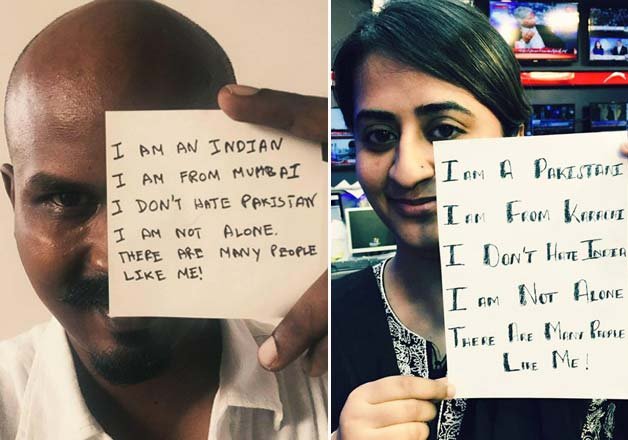 I AM AN INDIAN
I AM FROM MUMBAI
I DON'T HATE PAKISTAN
I AM NOT ALONE.
THERE ARE MANY PEOPLE
LIKE ME!
I AM A PAKISTANI
I AM FROM KARACHI
I DON'T HATE INDIA
I AM NOT ALONE
THERE ARE MANY PEOPLE
LIKE ME!